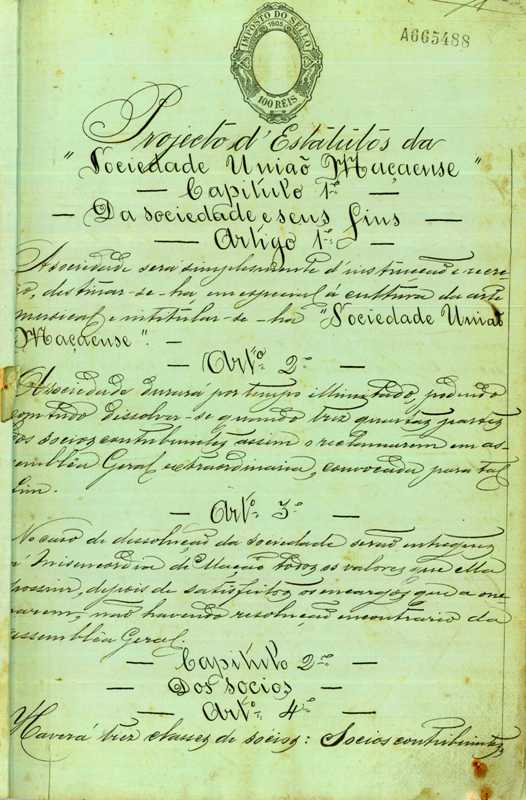 IMPOSTO DO SELLO
1905
100 REIS
A665488
Projecto d'Estatutos da
"Sociedade União Maçaense"
— Capitulo 1º —
— Da sociedade e seus fins —
— Artigo 1º —
A sociedade será simplesmente d'instrucção e recre-
io, destinar-se-ha em especial á cultura da arte
musical e intitular-se-ha "Sociedade União
Maçaense". —
— Artº 2º —
A sociedade durará por tempo illimitado, podendo
comtudo dissolver-se quando trez quartas partes
dos socios contribuintes assim o reclamarem em as-
sembléa Geral extraordinaria, convocada para tal
fim.
— Artº 3º —
No caso de dissolução da sociedade serão entregues
á Misericordia de Mação todos os valores que ella
possuir, depois de satisfeitos os encargos que a one-
rarem, não havendo resolução em contrario da
assembléa Geral.
— Capitulo 2º —
— Dos socios —
— Artº 4º —
Haverá trez classes de socios: Socios contribuintes